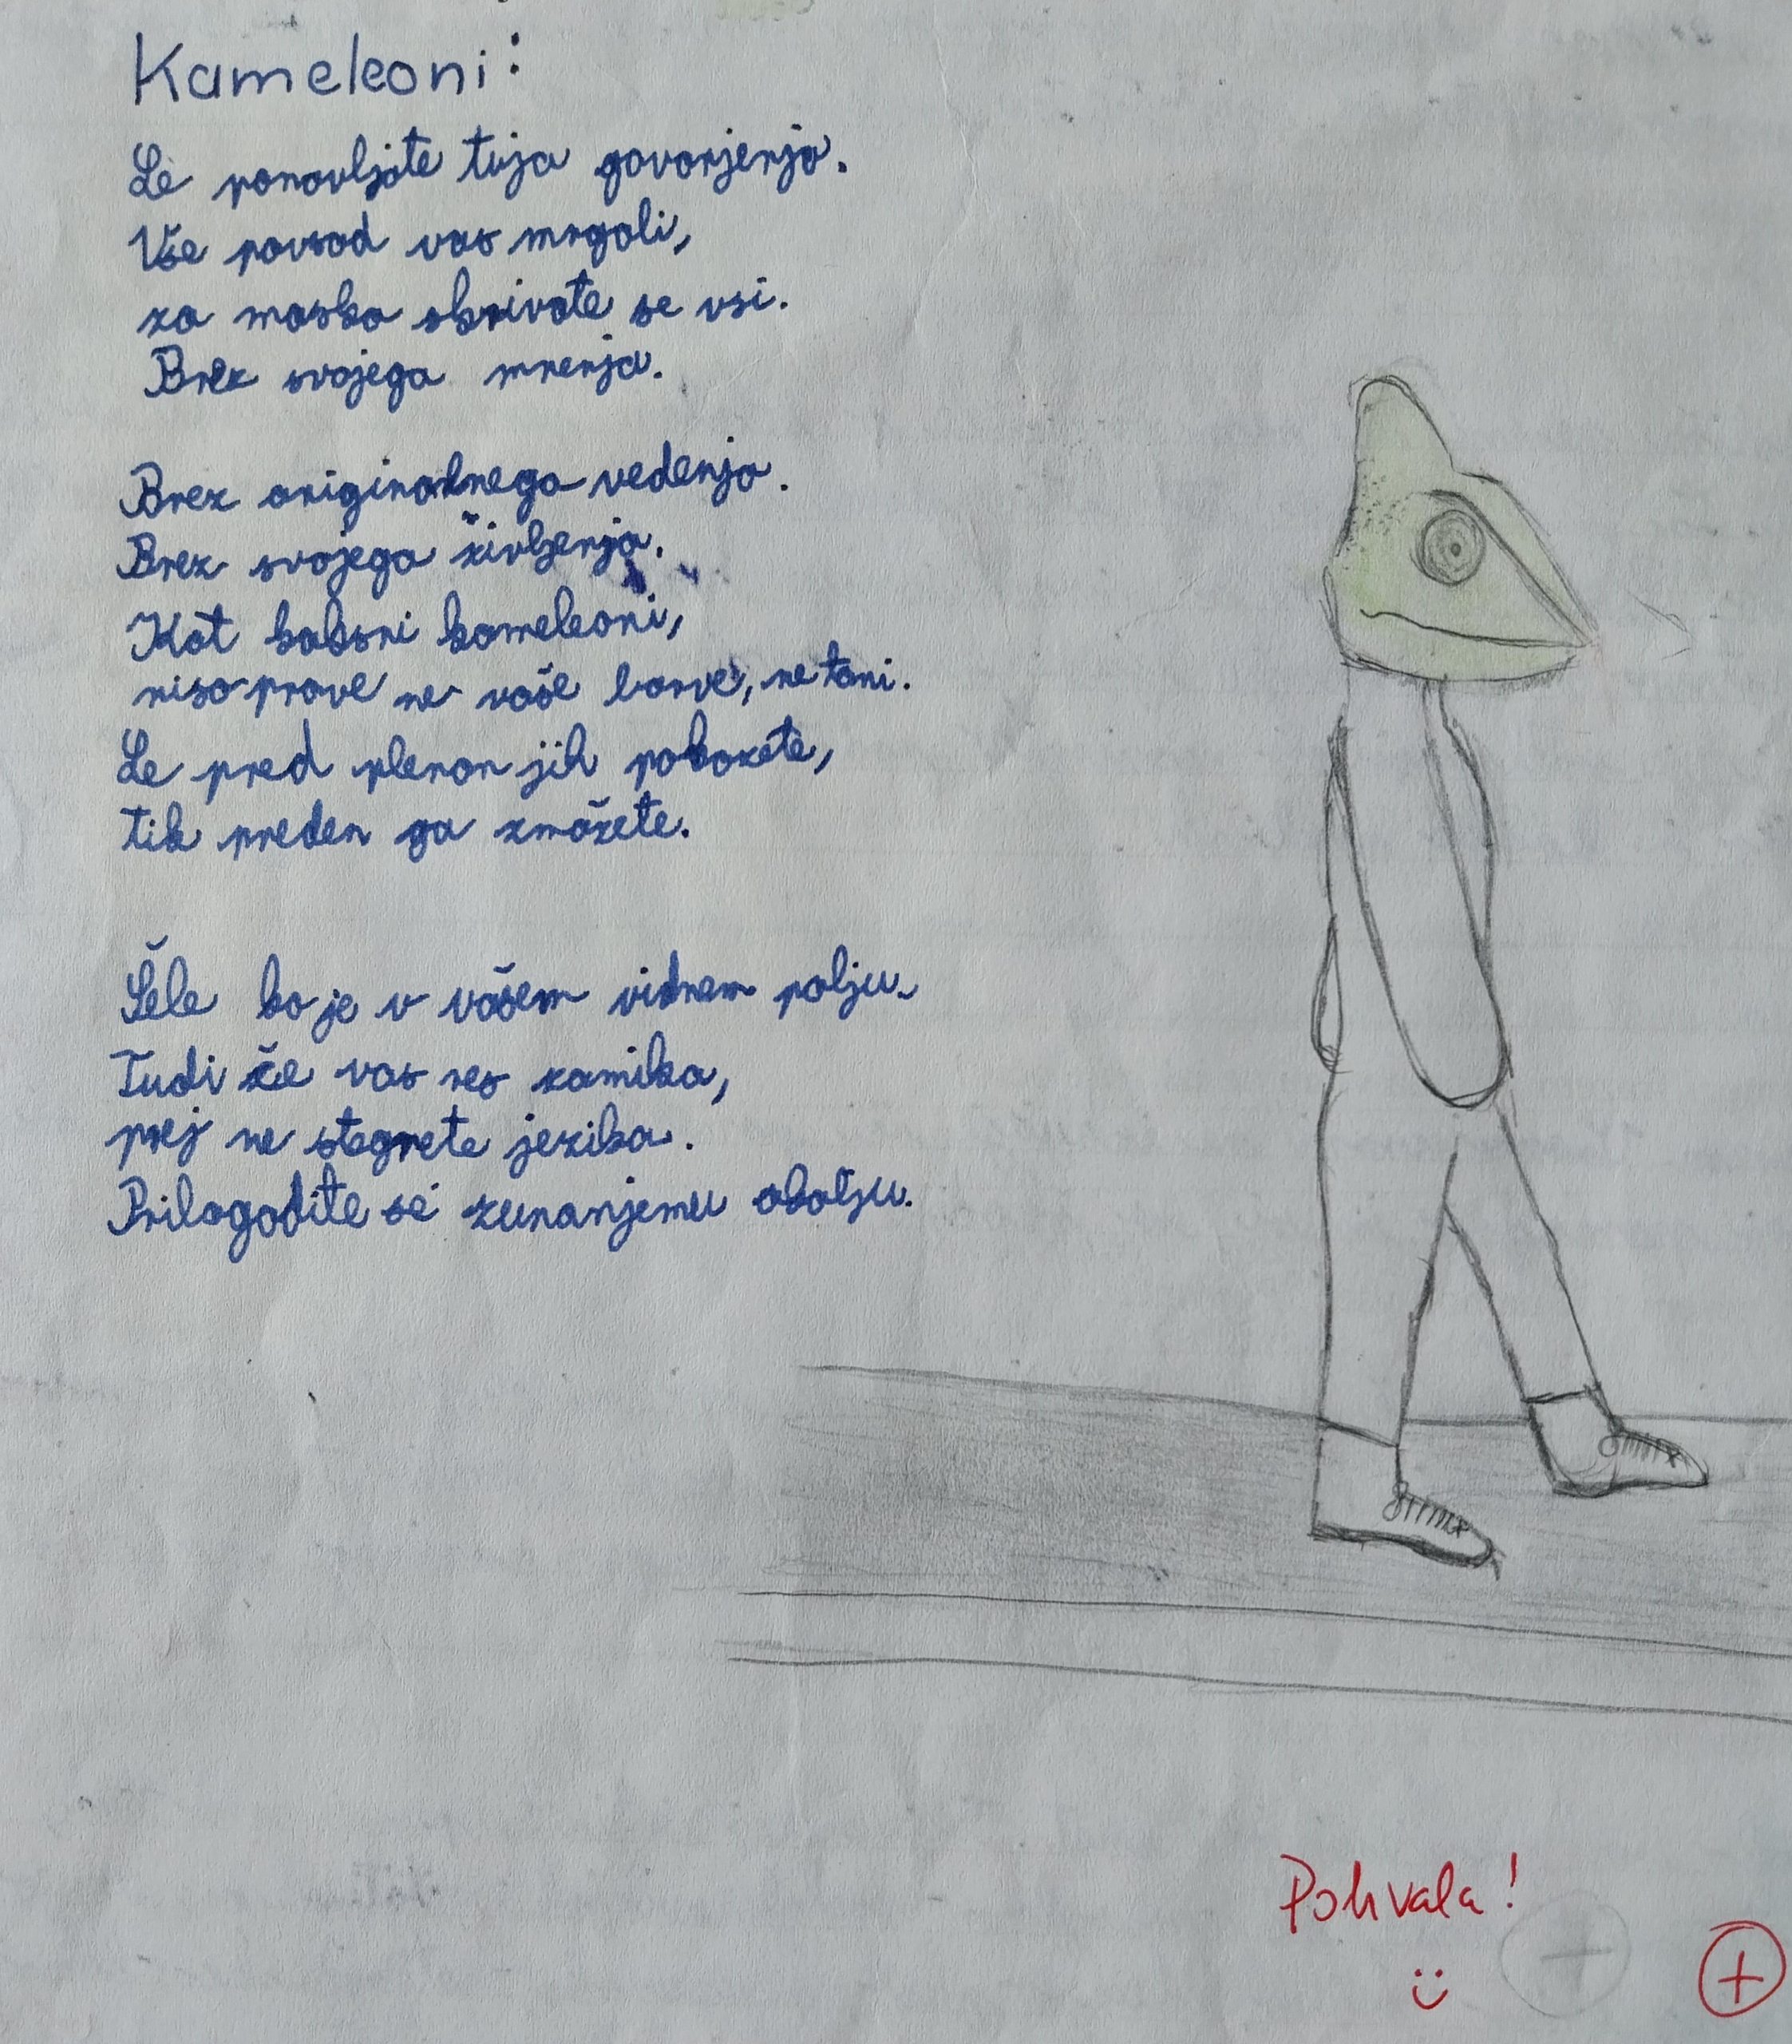 Kameleoni:
Le ponavljate tuja govorjenja.
Vse povsod vas mrgoli,
za masko skrivate se vsi.
Brez svojega mnenja.
Brez originalnega vedenja.
Brez svojega življenja.
Kot kakšni kameleoni,
niso prave ne vaše barve, ne toni.
Le pred plenom jih pokažete,
tik preden ga zmažete.
Šele ko je v vašem vidnem polju.
Tudi če vas res zamika,
prej ne stegnete jezika.
Prilagodite se zunanjemu okolju.
Pohvala!